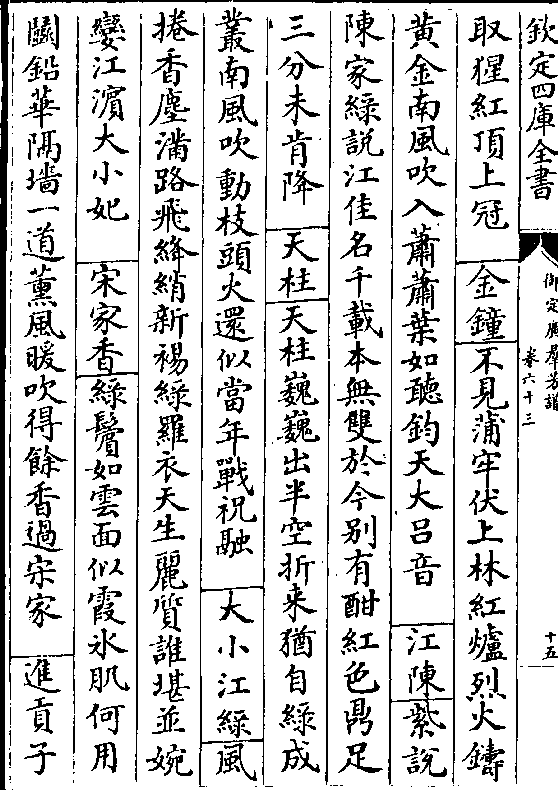 欽定四庫全書
御定廣羣芳譜
卷六十三
十五
取猩紅頂上冠 金鐘 不見蒲牢伏上林紅爐烈火鑄
黃金南風吹入蕭蕭葉如聽鈞天大呂音 江陳紫 說
陳家綠說江佳名千載本無雙於今别有酣紅色鼎足
三分未肯降 天柱 天柱巍巍出半空折来猶自綠成
叢南風吹動枝頭火還似當年戰祝融 大小江綠 風
捲香塵滿路飛絳綃新裼綠羅衣天生麗質誰堪並婉
孌江濵大小妃 宋家香 綠鬢如雲面似霞氷肌何用
鬭鉛華隔墻一道薰風暖吹得餘香過宋家 進貢子